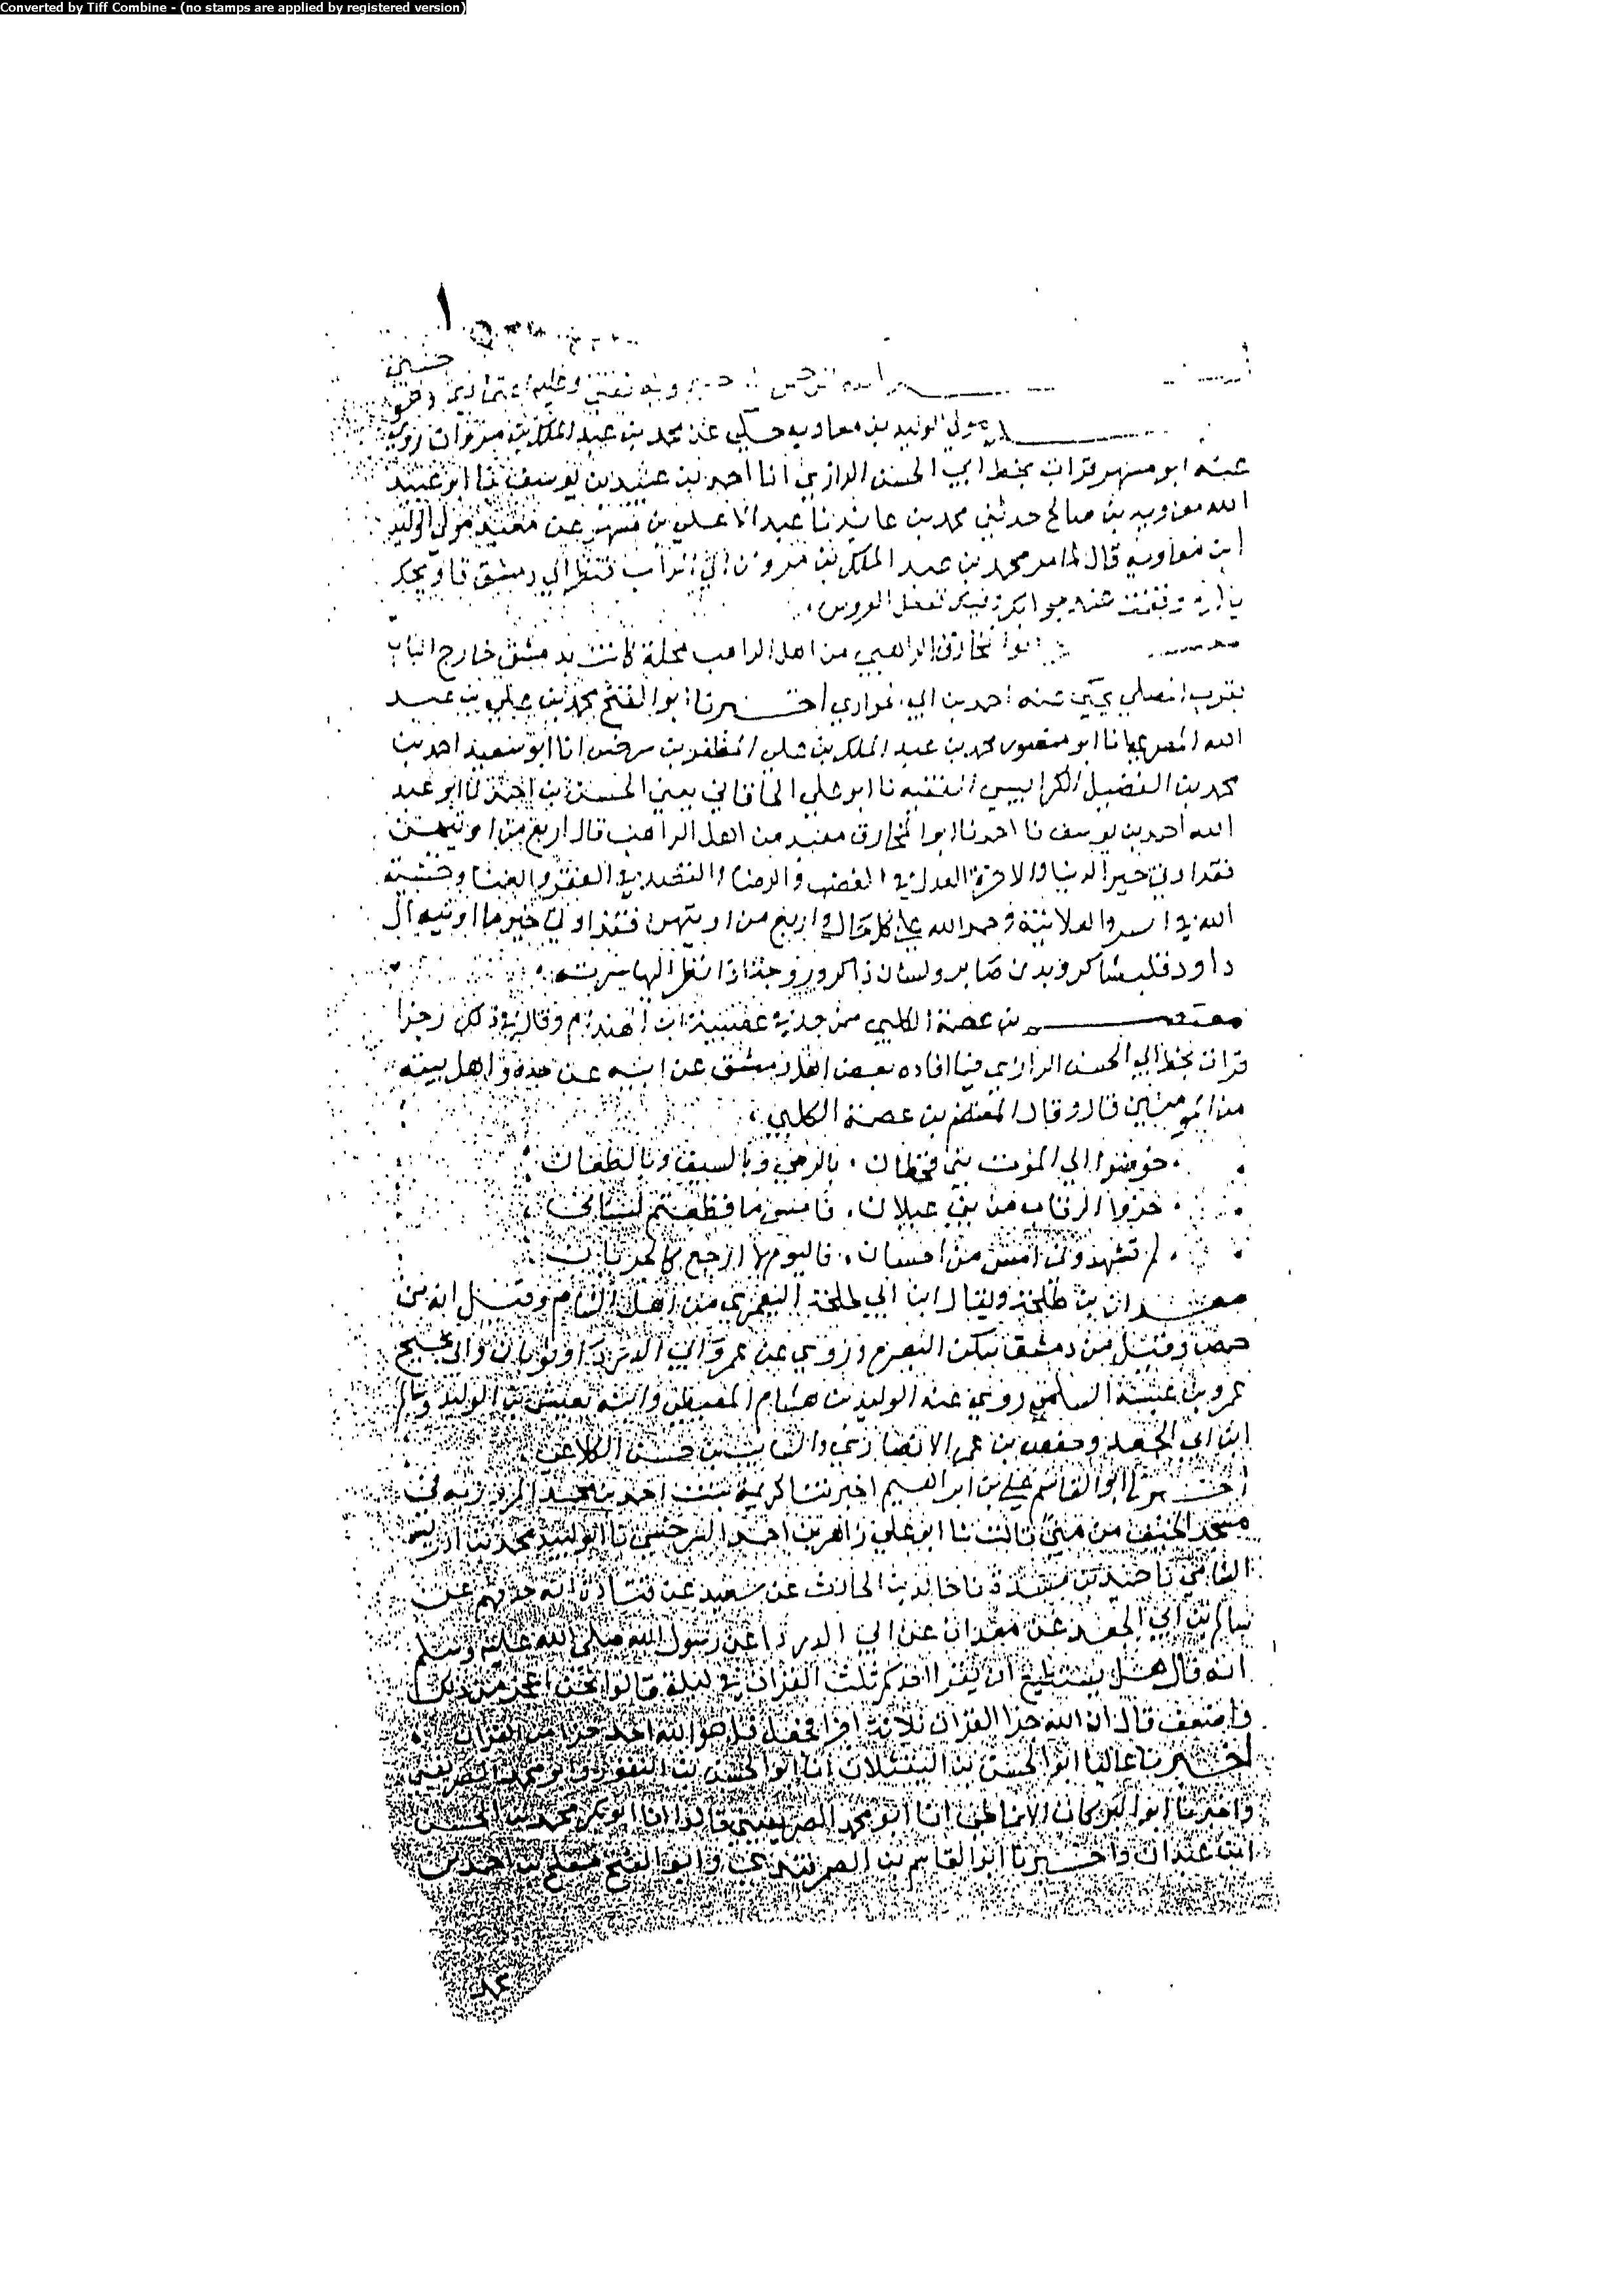 Converted by Tiff Combine - (no stamps are applied by registered version)
١
الله الرحمن وبه ثقتي وعليه
مولي الوليد بن معاويه حكي عن محمد بن عبد الملك بن مروان روي
عنه ابو مسهر قرات بخط ابي الحسن الرازي انا احمد بن عبيد بن يوسف نا ابو عبيد
الله معاويه بن صالح حدثني محمد بن عايد نا عبد الاعلي بن مسهر عن معبد مولي الوليد
ابن معاويه قال لما مر محمد بن عبد الملك بن مروان الي فنظر الي دمشق قال ويحك
ابو المخارق الراهبي من اهل الراهب محلة كانت بدمشق خارج الباب
بقرب المصلي حكي عنه احمد بن ابي الحواري اخبرنا ابو الفتح محمد بن علي بن عبد
الله المصري انا ابو منصور محمد بن عبد الملك بن علي المظفر بن سرخس انا ابو سعيد احمد بن
محمد بن الفضيل الكرابيسي الفقيه نا ابو علي الخاقاني يعني الحسن بن احمد نا ابو عبد
الله احمد بن يوسف نا احمد نا ابو المخارق معبد من اهل الراهب قال اربع من اوتيهن
فقد اوتي خير الدنيا والاخرة العدل في الغضب والرضا والقصد في الفقر والغنا وخشية
الله في السر والعلانية وحمد الله علي كل حال واربع من اوتيهن فقد اوتي خير ما اوتيه ال
داود قلب شاكر وبدن صابر ولسان ذاكر وزوجة اذا نظر اليها سرته
بن عصمة الكلبي ممن جد في عصبية ابن الهيذام وقال في ذلك رجزا
قرات بخط ابي الحسن الرازي فيما افاده بعض اهل دمشق عن ابيه عن جده واهل بيته
من المريين قال وقال المعتصم بن عصمة الكلبي
خوضوا الي الموت بني قحطان . بالرمح وبالسيف وبالطعان
حزوا الرقاب من بني عيلان .
لم تشهدوني امس من احسان . فاليوم
معدان بن طلحة ويقال ابن ابي طلحة اليعمري من اهل الشام وقيل انه من
حمص وقيل من دمشق سكن البصرة وروي عن عمر وابي الدردا وثوبان وابي نجيح
عمرو بن عبسة السلمي روي عنه الوليد بن هشام المعيطي وابنه يعيش بن الوليد وسالم
ابن ابي الجعد وحفص بن عمر الانصاري والسايب بن حبيش الكلاعي
اخبرنا ابو القاسم علي بن ابراهيم اخبرتنا كريمة بنت احمد بن محمد المروزيه في
مسجد الخيف من مني قالت نا ابو علي زاهر بن احمد السرخسي نا ابو لبيد محمد بن ادريس
الشامي نا حميد بن مسعدة نا خالد بن الحارث عن سعيد عن قتادة انه حدثهم عن
سالم بن ابي الجعد عن معدان عن ابي الدردا عن رسول الله صلي الله عليه وسلم
انه قال هل يستطيع ان يقرا احدكم ثلث القران في ليلة قالوا نحن اعجز من ذلك
واضعف قال ان الله جزا القران ثلاثة اجزا فجعل قل هو الله احد جزا من القران
اخبرنا عاليا ابو الحسن بن انا ابو الحسن بن النقور وابو محمد الصريفيني
واخبرنا ابو البركات الانماطي انا ابو محمد الصريفيني قالا انا ابو بكر محمد بن الحسن
ابن عبدان واخبرنا ابو القاسم بن السمرقندي وابو الفتح مفلح بن احمد بن